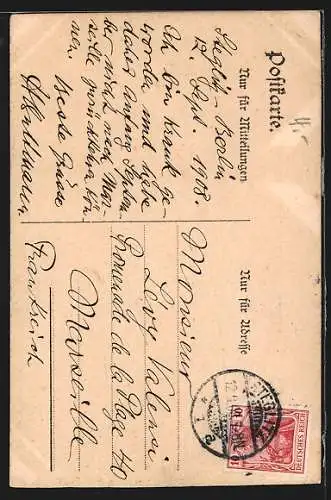 Postkarte.
Nur für Mitteilungen
Steglitz-Berlin
12. Sept. 1908.
Ich bin krank ge-
worden und habe
daher Anfang Septem-
ber nicht nach Mar-
seille zurückkehren kön-
nen.
Beste Grüsse
Nur für Adresse
Monsieur
Lévy Valensi
Promenade de la Plage 40
Marseille
Frankreich
STEGLITZ
DEUTSCHES REICH